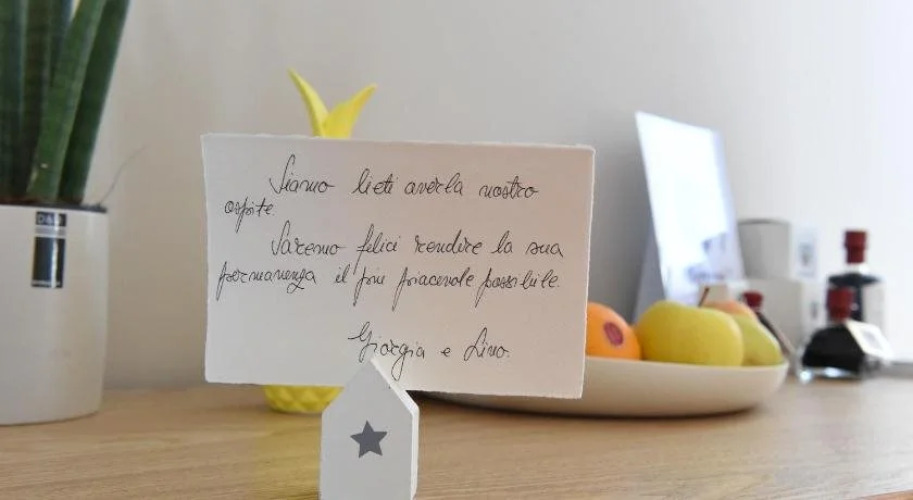 Siamo lieti averla nostro
ospite.
Saremo felici rendire la sua
permanenza il più piacevole possibile
Giorgia e Lino.